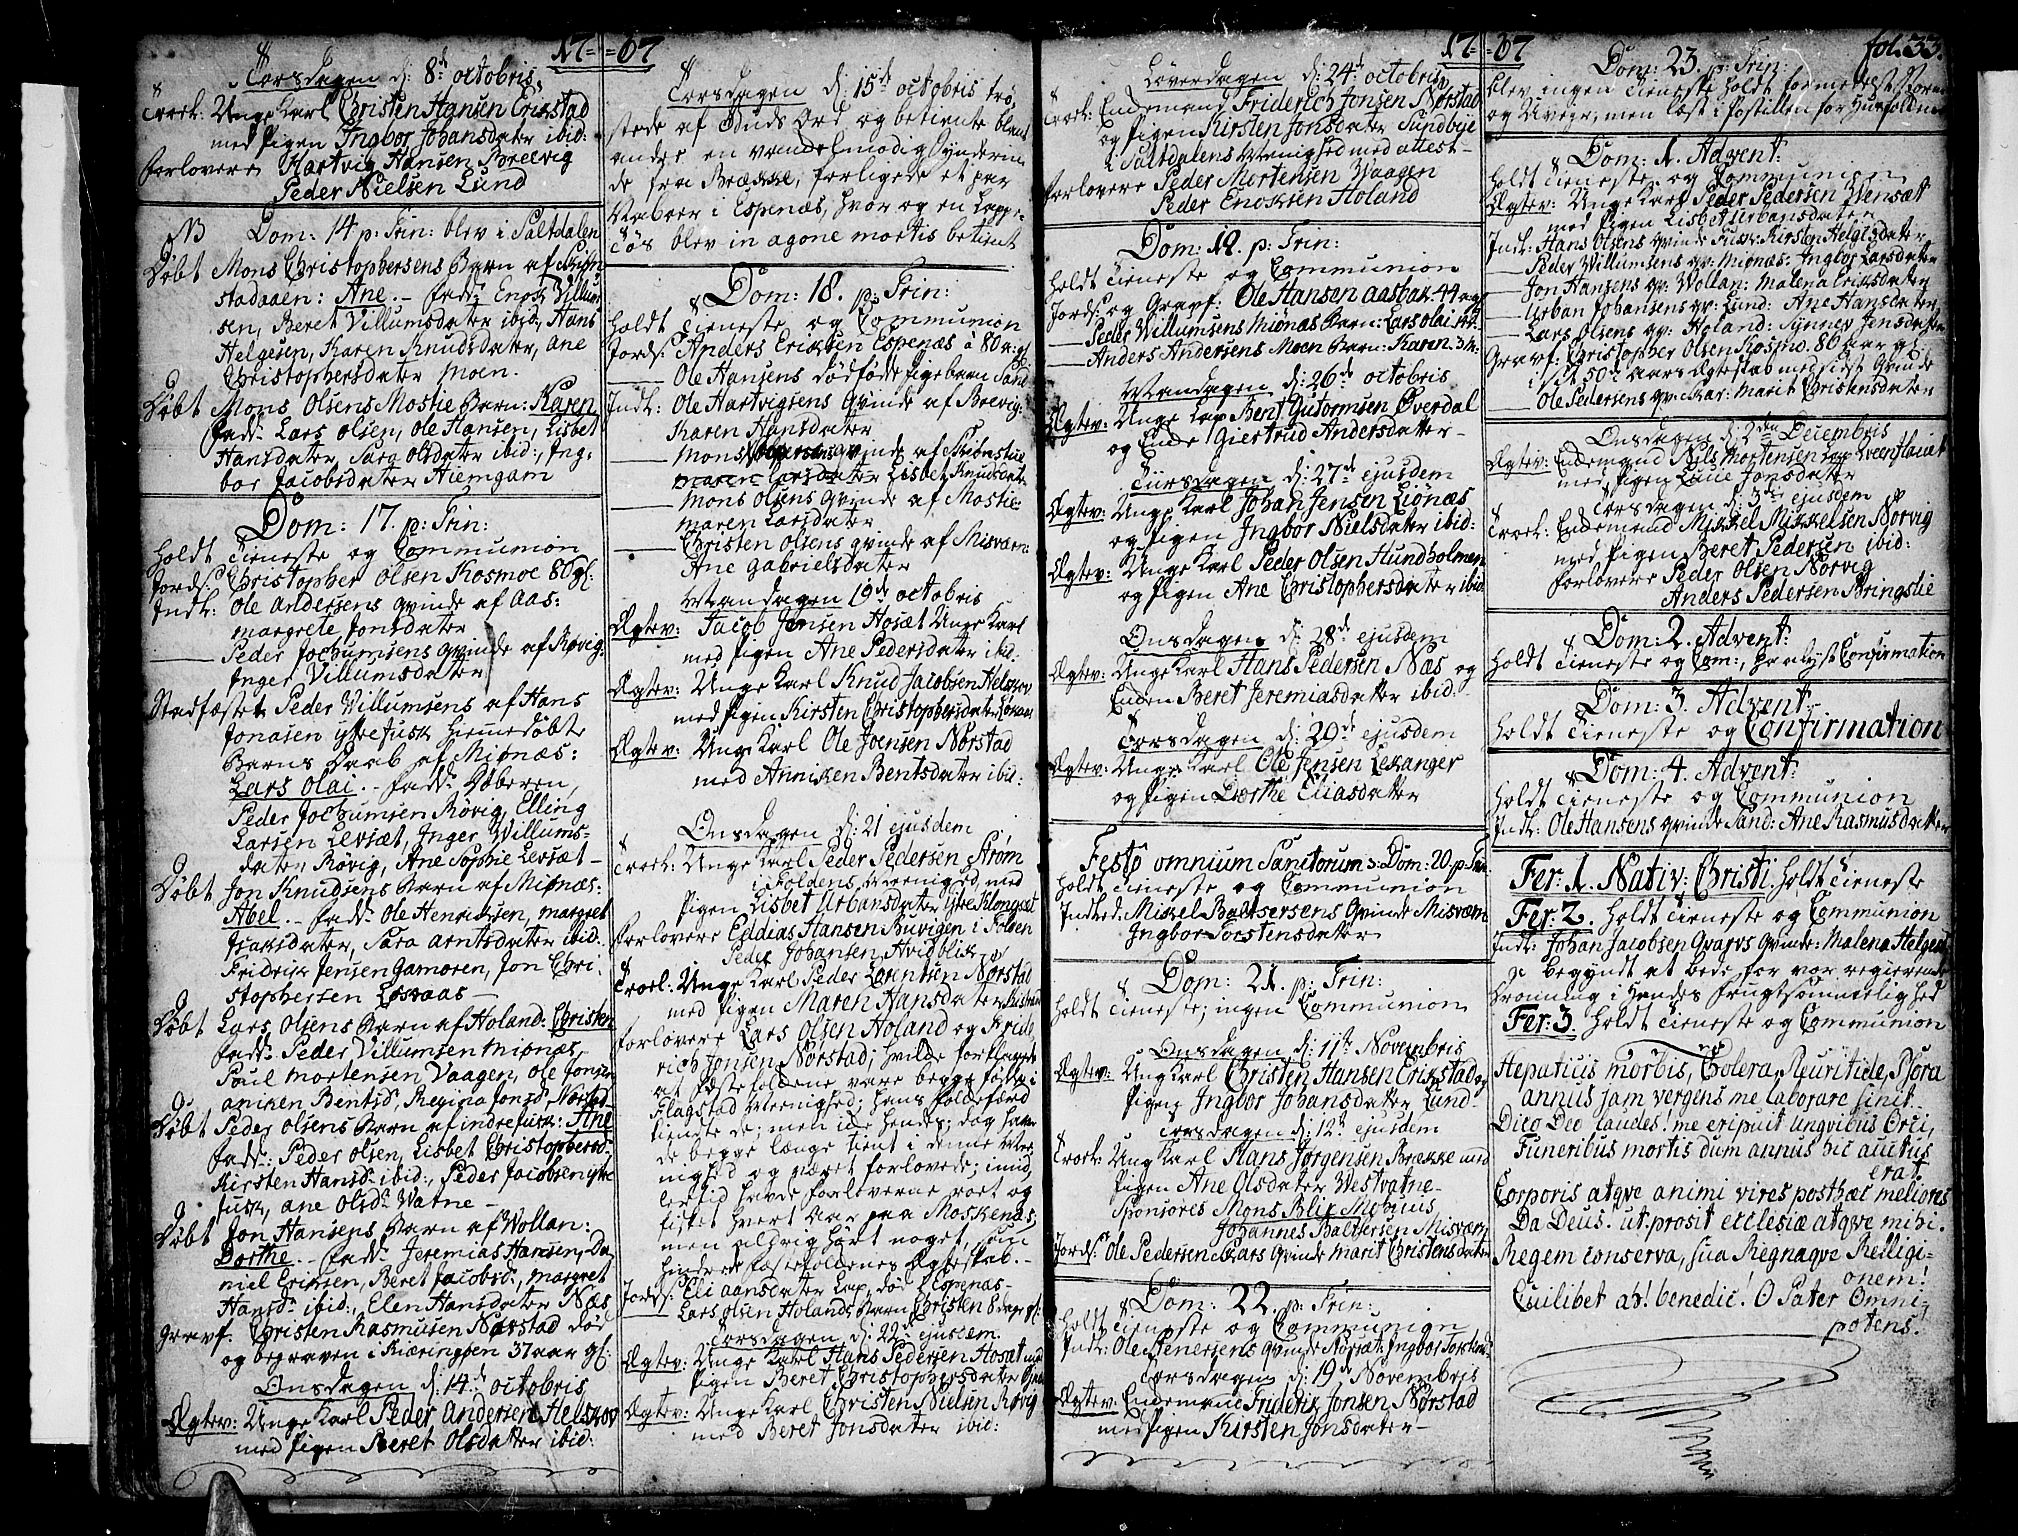 17 = = 67
Torsdagen d: 8de octobris
Troel: Unge Karl Christen Hansen Erikstad
med Pigen Ingbor Johansdater ibid:
Forlovere Hartvig Hansen Breevig
Peder Nielsen Lund
NB Dom: 14 p: Trin: blev i Saltdalen
Døbt Mons Christophersens Barn af
stadaaen: Ane. - fadd: Enok Villum
sen, Beret Villumsdater ibid:, Hans
Helgesen, Karen Knudsdater, Ane
Christophersdater Moen.
Døbt Mons Olsens Mostie Barn: Karen
fadd: Lars Olsen, Ole Hansen, Lisbet
Hansdater, Sara Olsdater ibid:, Ing-
bor Jacobsdater Hiemgam
Dom: 17. p: Trin:
Holdt Tieneste og Communion
Jords: Christopher Olsen Kosmoe 80 gl:
Indl: Ole Andersens qvinde af Aas:
Margrete Jonsdater
Peder Jochumsens qvinde af Røvig:
Inger Villumsdater
Stadfæstet Peder Willumsens af Hans
Jonasen ytrefusk hiemedøbte
Barns Daab af Miønæs:
Lars Olai. - fadd:
Peder Jochumsen Røvig, Elling
Larsen Levsæt, Inger Willums-
dater Røvig, Ane Sophie Levsæt -
Døbt Jon Knudsens Barn af Miønæs:
Abel. - fadd: Ole Henriksen, Margret
Isaksdater, Sara Arntsdater ibid:
Fridrik Jensen Gamoren, Jon Chri-
stophersen
Døbt Lars Olsens Barn af Holand: Christen
fadd: Peder Villumsen Miønæs,
Poul Mortensen Vaagen, Ole Jonsen
Aniken Bentsd, Regina Jonsd, Norstad
Døbt Peder Olsens Barn af indrefusk: Ane
fadd: Peder Olsen, Lisbet Christophersd-
Kirsten Hansd: ibid:, Peder Jacobsen ytre
fusk, Ane Olsd: Vatne -
Døbt Jon Hansens Barn af Vollan:
Dorthe - fadd: Jeremias Hansen, Da-
niel Eriksen, Beret Jacobsd:, Margret
Hansd: ibid:, Elen Hansdater Næs
Gravf. Christen Rasmusen Nørstad død
og begraven i Kiæringøen 37 aar gl:
Onsdagen d: 14de octobris
Ægtev: Unge Karl Peder Andersen Helskov
med Pigen Beret Olsdatter ibid:
Torsdagen d: 15de octobris trø-
stede af Guds Ord og betiente blant
andre en vandelmodig Synderin-
de fra Brække, forligede et par
Naboer i Espenæs, hvor og en Lappe-
Tøs blev in agone mortis betient
Dom: 18. p: Trin:
Holdt Tieneste og Communion
Jords: Anders Eriksen Espenæs à 80 a: gl
Ole Hansens dødfødte Pigebarn Sand
Indl: Ole Hartvigsens Qvinde af Brevig:
Karen Hansdater
Lisbet Knudsdater
Mons Olsens qvinde af Mostie:
Maren Larsdater
Christen Olsens qvinde af Misværn:
Ane Gabrielsdater
Mandagen 19de octobris
Ægtev: Jacob Jensen Hosæt Unge Karl
med Pigen Ane Pedersdater ibid:
Ægtev: Unge Karl Knud Jacobsen Helskov
med Pigen Kirsten Christophersdater
Ægtev: Unge Karl Ole Joensen Nørstad
med Anniken Bentsdater ibid:
Onsdagen d: 21 ejusdem
Troel: Unge Karl Peder Pedersen Strøm
i Foldens Menighed med
Pigen Lisbet Urbansdater ytre Klongset
Forlovere Eddias Hansen Buvigen i Folden
Peder Johansen Hvidblik
Troel: Unge Karl Peder Lorentsen Nørstad
med Pigen Maren Hansdater
Forlovere Lars Olsen Holand og Fride
rich Jonsen Nørstad; hvilke forklarede
at Fæstefolkene vare begge fødde i
Flagstad Menighed; hans Foldefærd
kiendte de; men ikke hendes; dog havde
de begge længe tient i denne Me-
nighed og været forlovede; imid-
lertid havde Forloverne roet og
fisket hvert Aar paa Moskenæs;
men aldrig hørt noget, som
hindrede Fæstefolkenes Ægteskab. -
Jords: Eli Aansdater Lap, død i Espenæs -
Lars Olsen Holands Barn Christen 8 dage gl:
Torsdagen d: 22de ejusdem
Ægtev: Unge Karl Hans Pedersen Hosæt med
Pigen Beret Christophersdater
Ægtev: Unge Karl Christen Nielsen Røvig
med Beret Jonsdater ibid:
17 = = 67
Løverdagen d: 24de octobris
Troel: Enkemand Friderich Jonsen Nørstad
og Pigen Kirsten Jonsdater Sundbye
i Saltdalens Menighed med attest -
Forlovere Peder Mortensen Vaagen
Peder Enoksen Holand
Dom: 19. p: Trin:
Holdt Tieneste og Communion
Jords: og Gravf: Ole Hansen Aasbak: 44 a: gl
Peder Willumsens Miønæs Barn: Lars Olai
Anders Andersens Moen Barn: Karen:
Mandagen d: 26de octobris
Ægtev: Unge Lap Bent Gutormsen Øverdal
og Enke Giertrud Andersdatter -
Tiirsdagen d: 27de ejusdem
Ægtev: Unge Karl Johan Jensen Liønæs
og Pigen Ingbor Nielsdater ibid:
Ægtev: Unge Karl Peder Olsen Hundholmen
og Pigen Ane Christophersdater ibid
Onsdagen d: 28de ejusdem
Ægtev: Unge Karl Hans Pedersen Næs og
Enken Beret Jeremiasdatter ibid:
Torsdagen d: 29de ejusdem
Ægtev: Unge Karl Ole Jensen Lekanger
og Pigen Dorthe Eliasdatter
Festo omnium Sanctorum: Dom: 20. p: Trin
Holdt Tieneste og Communion
Indled: Mikel Baltsersens Qvinde Misværn
Ingbor Torstensdater
Dom: 21. p: Trin:
Holdt Tieneste; ingen Communion
Onsdagen d: 11te Novembris
Ægtev: Ung Karl Christen Hansen Erikstad og
Pigen Ingbor Johansdater Lund -
Torsdagen d: 12te ejusdem
Troel: Ung Karl Hans Jørgensen Brække med
Pigen Ane Olsdater Westvatne -
Sponsores Mons Blix
Johannes Baltsersen Misværn
Jords: Ole Pedersen Kars qvinde Marit Christensdater
Dom: 22. p: Trin:
Holdt Tieneste og Communion
Indl: Ole Stenersens qvinde Norsæt: Ingbor
Torsdagen d: 19de Novembris
Ægtev: Enkemand Friderik Jonsen Nørstad
med Pigen Kirsten Jonsdater -
fol: 33.
Dom: 23. p: Trin:
blev ingen Tieneste holdt formedelst Storm
og Uvejr; men læst i Postillen for Huusfolkene
Dom: 1. Advent:
Holdt Tieneste og Communion
Ægtev: Unge Karl Peder Pedersen Wensæt
med Pigen Lisbet Urbansdater
Indl: Hans Olsens qvinde Fusk: Kirsten Helgesdater
Peder Willumsens qv: Miønæs: Ingbor Larsdater
Jon Hansens qv: Wollan: Malena Eriksdater
Urban Johansens qv: Lund: Ane Hansdater
Lars Olsens qv: Holand: Synnev Jensdater
Gravf: Christopher Olsen Kosmo. 80 aar gl:
i sit 50de aars Ægteskab med sidst Qvinde
Ole Pedersens qv: Kar: Marit Christensdater
Onsdagen d: 2den Decembris
Ægtev: Enkemand Nils Mortensen Lap
med Pigen Jonsdater
Torsdagen d: 3die ejusdem
Troel: Enkemand Mikkel Mikkelsen Norvig
med Pigen Beret Pedersen ibid:
Forlovere Peder Olsen Norvig
Anders Pedersen Bringslie
Dom: 2. Advent:
Holdt Tieneste og Com:, Confirmation
Dom: 3. Advent:
Holdt Tieneste og Confirmation
Dom: 4. Advent:
Holdt Tieneste og Communion
Indl: Ole Hansens qvinde Sand: Ane Rasmusdatter
Fer: 1. Nativ: Christi. Holdt Tieneste
Fer: 2. Holdt Tieneste og Communion
Indl: Johan Jacobsen Qvarvs Qvinde: Malena Helgesd
begyndt at bede for vor regierende
Dronning i Hendes frugtsommelighed
Fer: 3. Holdt Tieneste og Communion
Hepaticus morbis, Colera, Pleuritide, Psora
annus jam vergens me laborare sinit.
Dico Deo laudes! me eripuit ungvibus Orci,
Funeribus mortis dum annus hic auctus
erat
Corporis atqve animi vires posthac meliores
Da Deus! ut prosit ecclesiæ atqve mihi.
Regem conserva, sua Regnaqve Relligi-
onem!
Cuilibet ah! benedic! O Pater Omni-
potens!